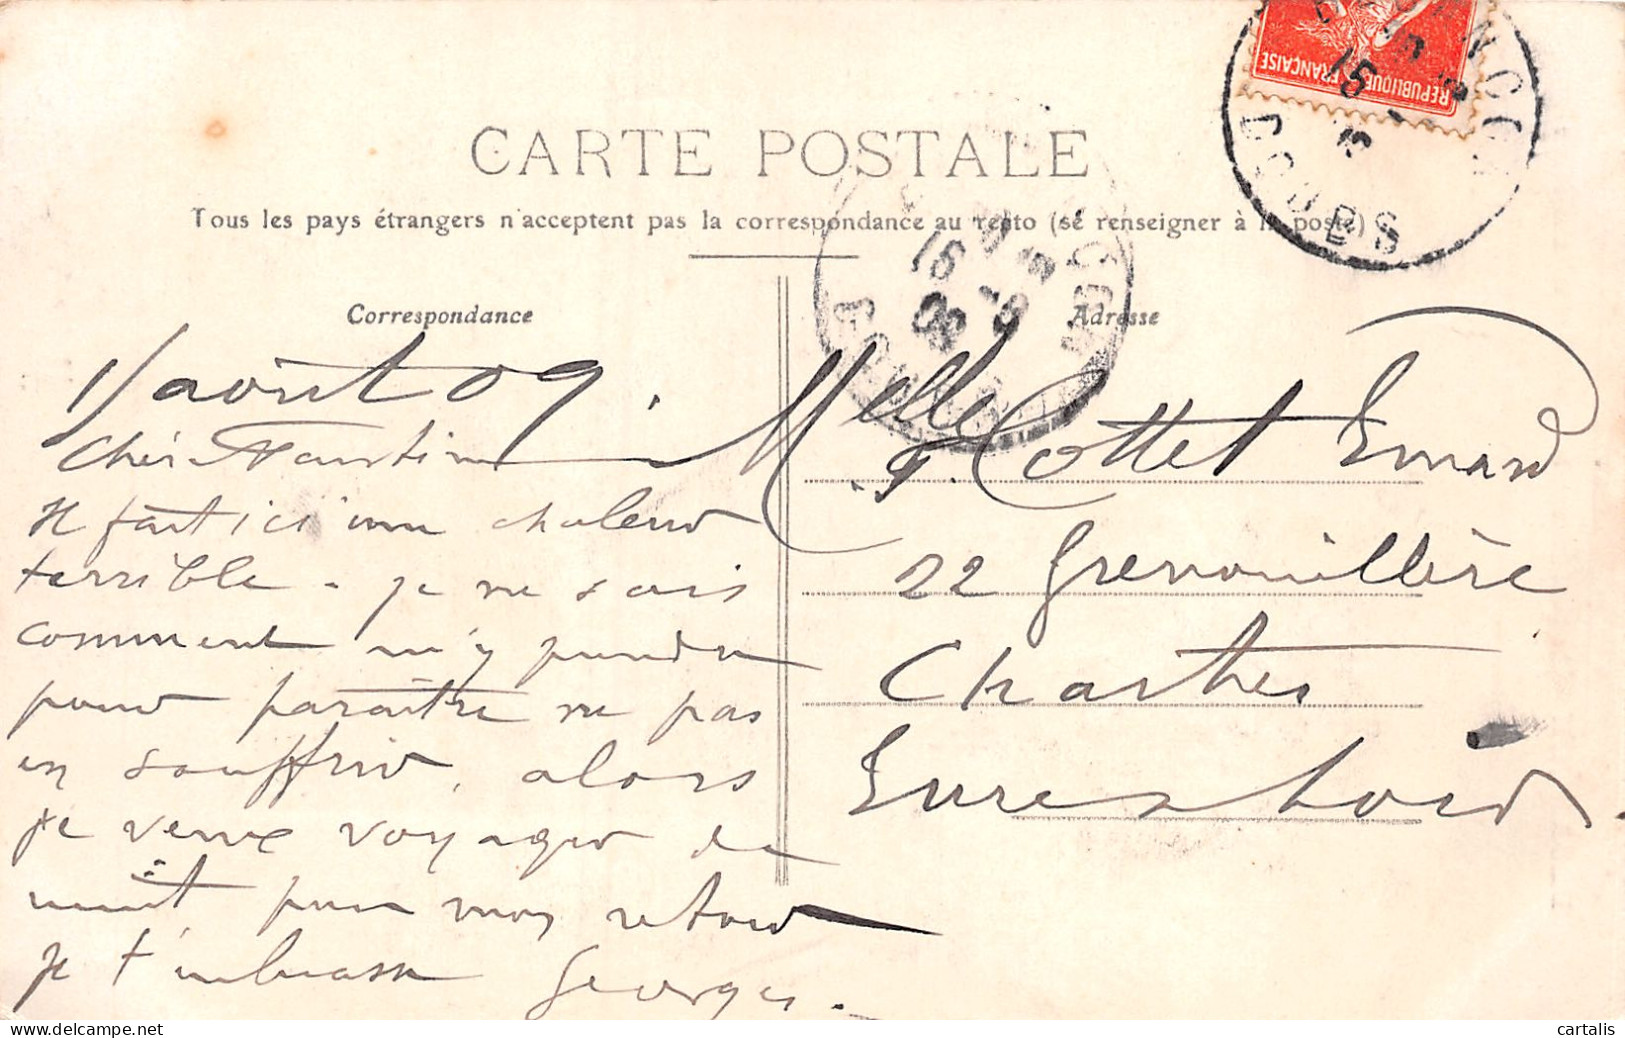 CARTE POSTALE
Tous les pays étrangers n'acceptent pas la correspondance au recto (se renseigner à la poste)
Correspondance
Adresse
REPUBLIQUE FRANÇAISE
15
DOUBS
15 -8
09
1/ août 09.
Cher
Il fait ici une chaleur
terrible - je ne sais
comment m'y prendre
pour paraître ne pas
en souffrir, alors
je veux voyager de
nuit, pour mon retour
je t'embrasse Georges.
Melle F. Cottet Emard
22 Grenouillère
Chartres
Eure & Loir
cartalis